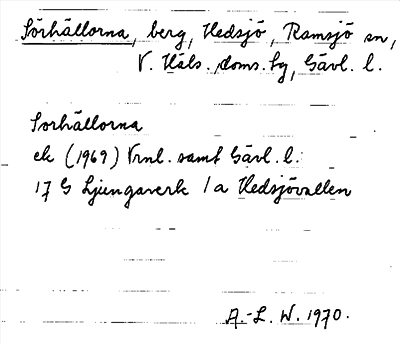 Sörhällorna, berg, Hedsjö, Ramsjö sn,
V. Häls. doms.hg, Gävl. l.
Sorhällorna
ek (1969) Vrnl. samt Gävl. l.
17 G Ljungaverk 1a Hedsjövallen
A.-L. W. 1970.